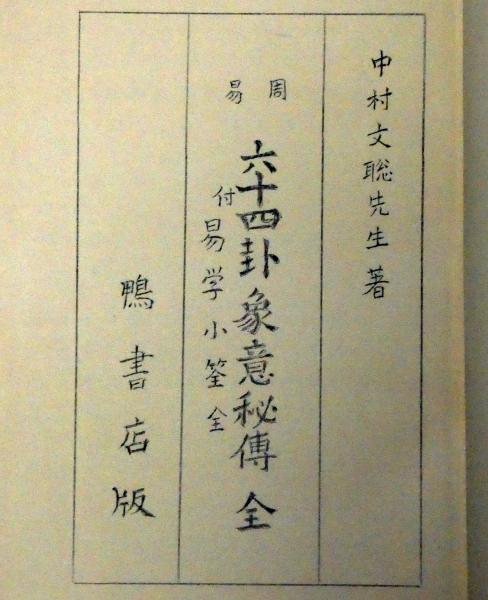 中村文聡先生著
周易
六十四卦象意秘傳 全
付易学小筌全
鴨書店版